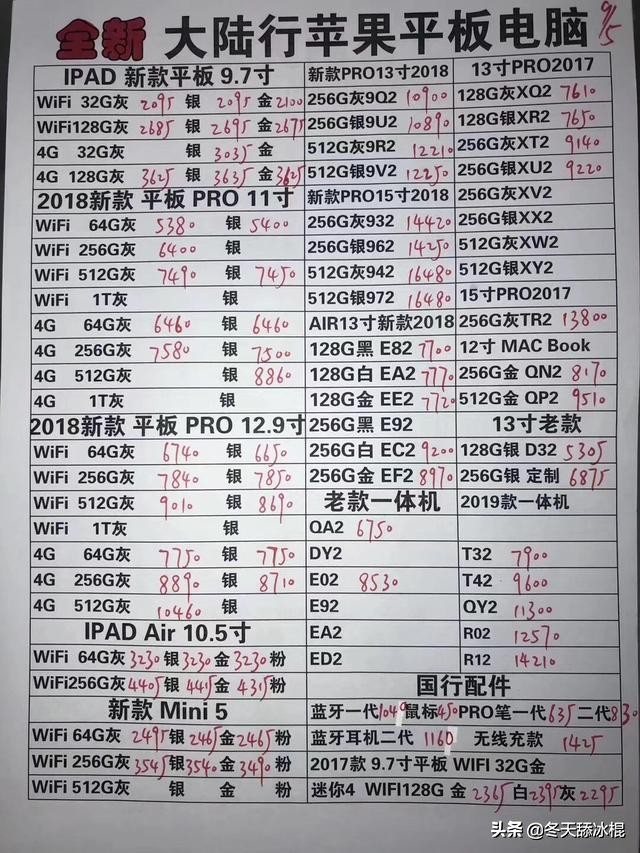 全新 大陆行苹果平板电脑 9/5
IPAD 新款平板 9.7寸
WiFi 32G灰 2095 银 2095 金 2100
WiFi128G灰 2685 银 2695 金 2675
4G 32G灰 银 3035 金
4G 128G灰 3625 银 3635 金 3625
2018新款 平板 PRO 11寸
WiFi 64G灰 5380 银 5400
WiFi 256G灰 6400 银
WiFi 512G灰 7490 银 7450
WiFi 1T灰 银
4G 64G灰 6460 银 6460
4G 256G灰 7580 银 7500
4G 512G灰 银 8860
4G 1T灰 银
2018新款 平板 PRO 12.9寸
WiFi 64G灰 6740 银 6650
WiFi 256G灰 7840 银 7850
WiFi 512G灰 9010 银 8690
WiFi 1T灰 银
4G 64G灰 7750 银 7750
4G 256G灰 8890 银 8710
4G 512G灰 10460 银
IPAD Air 10.5寸
WiFi 64G灰 3230 银 3230 金 3230 粉
WiFi256G灰 4405 银 4415 金 4315 粉
新款 Mini 5
WiFi 64G灰 2495 银 2465 金 2465 粉
WiFi 256G灰 3545 银 3540 金 3490 粉
WiFi 512G灰 银 金 粉
新款PRO13寸2018
256G灰9Q2 10900
256G银9U2 10890
512G灰9R2 12210
512G银9V2 12250
新款PRO15寸2018
256G灰932 14420
256G银962 14250
512G灰942 16480
512G银972 16480
AIR13寸新款2018
128G黑 E82 7700
128G白 EA2 7770
128G金 EE2 7720
256G黑 E92
256G白 EC2 9200
256G金 EF2 8970
老款一体机
QA2 6750
DY2
E02 8530
E92
EA2
ED2
13寸PRO2017
128G灰XQ2 7610
128G银XR2 7650
256G灰XT2 9140
256G银XU2 9220
256G灰XV2
256G银XX2
512G灰XW2
512G银XY2
15寸PRO2017
256G灰TR2 13800
12寸 MAC Book
256G金 QN2 8170
512G金 QP2 9510
13寸老款
128G银 D32 5305
256G银 定制 6875
2019款一体机
T32 7900
T42 9600
QY2 11300
R02 12570
R12 14210
国行配件
蓝牙一代1040 鼠标450 PRO笔一代635 二代830
蓝牙耳机二代 1160 无线充款 1425
2017款 9.7寸平板 WIFI 32G金
迷你4 WIFI128G 金 2365 白 2395 灰 2295
头条 @冬天舔冰棍